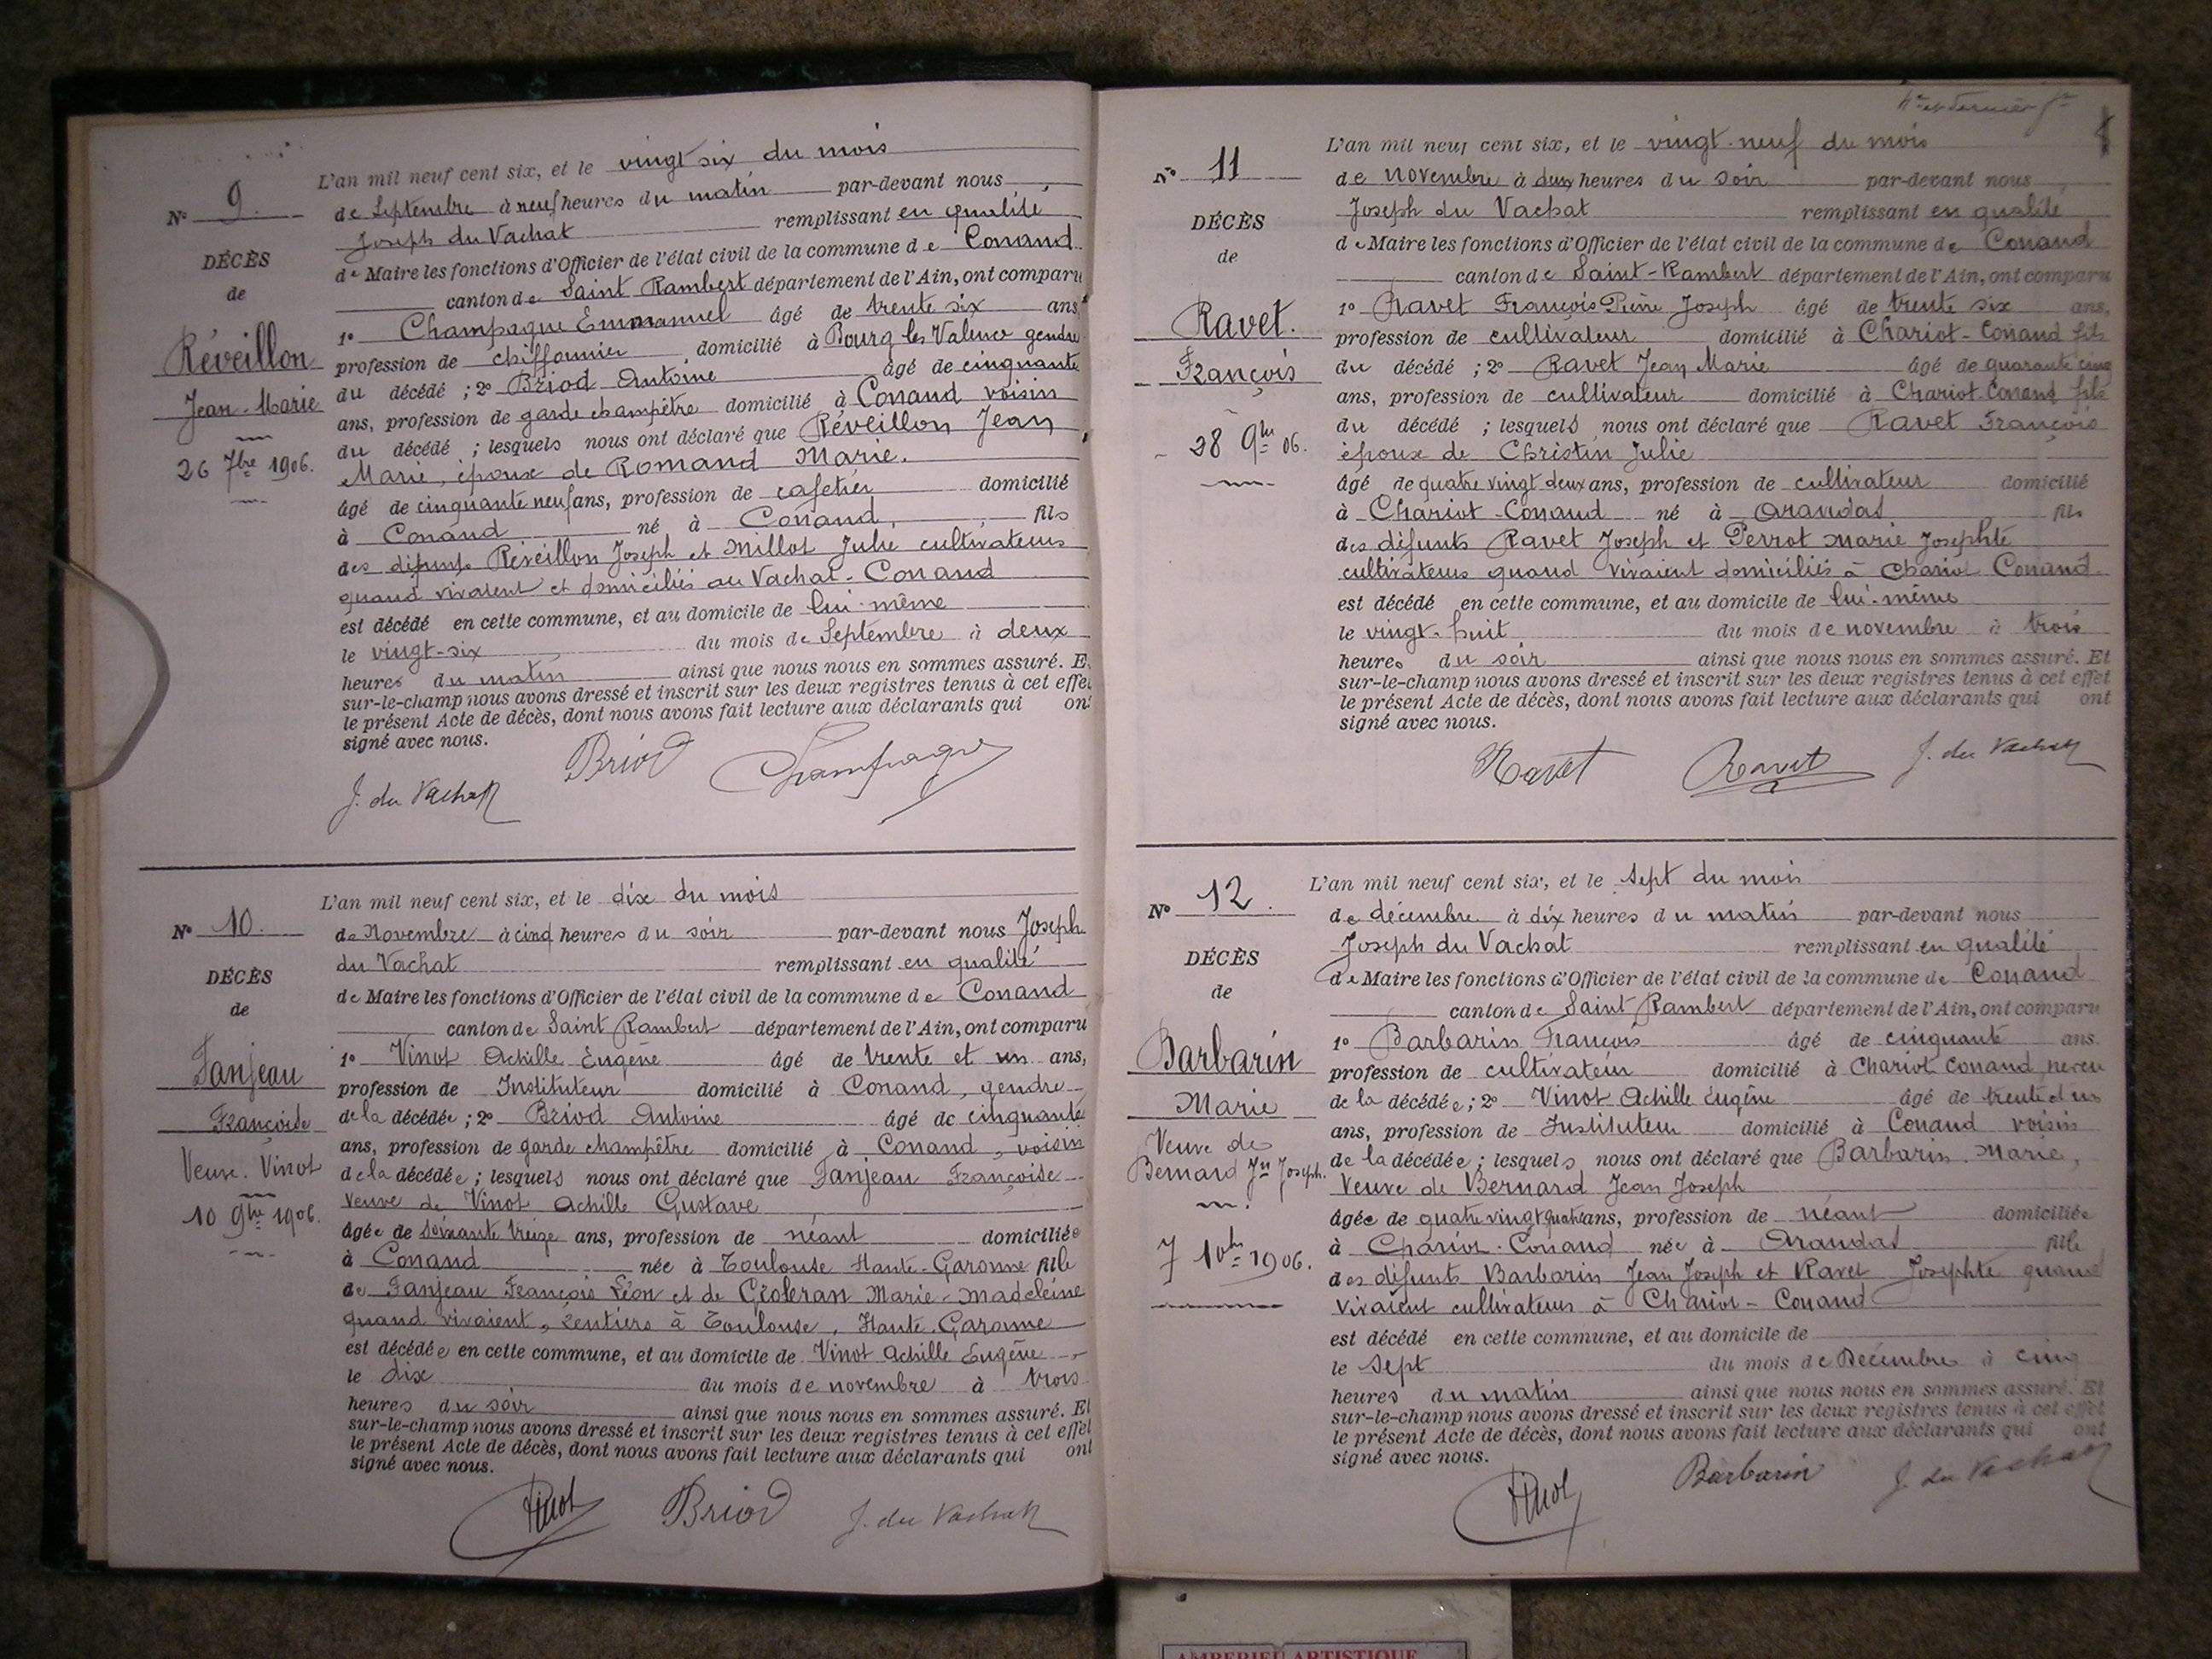 N° 9.
DÉCÈS
de
Réveillon
Jean-Marie
26 7bre 1906.
L'an mil neuf cent six, et le vingt six du mois
de Septembre à neuf heures du matin par-devant nous
Joseph du Vachat remplissant en qualité
de Maire les fonctions d'Officier de l'état civil de la commune de Conand
canton de Saint Rambert département de l'Ain, ont comparu
1° Champagne Emmanuel âgé de trente six ans,
profession de chiffonnier domicilié à Bourg les Valence gendre
du décédé ; 2° Briod Antoine âgé de cinquante
ans, profession de garde champêtre domicilié à Conand voisin
du décédé ; lesquels nous ont déclaré que Réveillon Jean
Marie, époux de Romand Marie.
âgé de cinquante neuf ans, profession de cafetier domicilié
à Conand né à Conand, fils
des défunts Réveillon Joseph et Millot Julie cultivateurs
quand vivaient et domiciliés au Vachat-Conand
est décédé en cette commune, et au domicile de lui-même
le vingt-six du mois de Septembre à deux
heures du matin ainsi que nous nous en sommes assuré. E
sur-le-champ nous avons dressé et inscrit sur les deux registres tenus à cet effe
le présent Acte de décès, dont nous avons fait lecture aux déclarants qui on
signé avec nous.
J. du Vachat Briod Champagne
N° 10.
DÉCÈS
de
Fanjeau
Françoise
Veuve Vinot
10 9bre 1906.
L'an mil neuf cent six, et le dix du mois
de Novembre à cinq heures du soir par-devant nous Joseph
du Vachat remplissant en qualité
de Maire les fonctions d'Officier de l'état civil de la commune de Conand
canton de Saint Rambert département de l'Ain, ont comparu
1° Vinot Achille Eugène âgé de trente et un ans,
profession de Instituteur domicilié à Conand, gendre
de la décédée ; 2° Briod Antoine âgé de cinquante
ans, profession de garde champêtre domicilié à Conand, voisin
de la décédée ; lesquels nous ont déclaré que Fanjeau Françoise
veuve de Vinot Achille Gustave
âgée de soixante treize ans, profession de néant domiciliée
à Conand née à Toulouse Haute-Garonne fille
de Fanjeau François Léon et de Marie-Madeleine
quand vivaient, rentiers à Toulouse, Haute-Garonne
est décédée en cette commune, et au domicile de Vinot Achille Eugène
le dix du mois de novembre à trois
heures du soir ainsi que nous nous en sommes assuré. Et
sur-le-champ nous avons dressé et inscrit sur les deux registres tenus à cet effet
le présent Acte de décès, dont nous avons fait lecture aux déclarants qui ont
signé avec nous.
Vinot Briod J. du Vachat
et dernier
N° 11
DÉCÈS
de
Ravet.
François
28 9bre 06.
L'an mil neuf cent six, et le vingt-neuf du mois
de novembre à deux heures du soir par-devant nous
Joseph du Vachat remplissant en qualité
de Maire les fonctions d'Officier de l'état civil de la commune de Conand
canton de Saint-Rambert département de l'Ain, ont comparu
1° Ravet François Pierre Joseph âgé de trente six ans,
profession de cultivateur domicilié à Chariot-Conand fils
du décédé ; 2° Ravet Jean Marie âgé de quarante cinq
ans, profession de cultivateur domicilié à Chariot-Conand fils
du décédé ; lesquels nous ont déclaré que Ravet François
époux de Christin Julie
âgé de quatre vingt deux ans, profession de cultivateur domicilié
à Chariot-Conand né à Arandas fils
des défunts Ravet Joseph et Perrot Marie Josephte
cultivateurs quand vivaient domiciliés à Chariot Conand.
est décédé en cette commune, et au domicile de lui-même
le vingt-huit du mois de novembre à trois
heures du soir ainsi que nous nous en sommes assuré. Et
sur-le-champ nous avons dressé et inscrit sur les deux registres tenus à cet effet
le présent Acte de décès, dont nous avons fait lecture aux déclarants qui ont
signé avec nous.
Ravet Ravet J. du Vachat
N° 12.
DÉCÈS
de
Barbarin
Marie
Veuve de
Bernard Jn Joseph.
7 10bre 1906.
L'an mil neuf cent six, et le sept du mois
de décembre à dix heures du matin par-devant nous
Joseph du Vachat remplissant en qualité
de Maire les fonctions d'Officier de l'état civil de la commune de Conand
canton de Saint Rambert département de l'Ain, ont comparu
1° Barbarin François âgé de cinquante ans.
profession de cultivateur domicilié à Chariot Conand, neveu
de la décédée ; 2° Vinot Achille Eugène âgé de trente et un
ans, profession de Instituteur domicilié à Conand voisin
de la décédée ; lesquels nous ont déclaré que Barbarin Marie,
Veuve de Bernard Jean Joseph
âgée de quatre vingt quatre ans, profession de néant domiciliée
à Chariot-Conand née à Arandas fille
des défunts Barbarin Jean Joseph et Ravet Josephte quand
vivaient cultivateurs à Chariot-Conand
est décédé en cette commune, et au domicile de
le sept du mois de Décembre à cinq
heures du matin ainsi que nous nous en sommes assuré. Et
sur-le-champ nous avons dressé et inscrit sur les deux registres tenus à cet effet
le présent Acte de décès, dont nous avons fait lecture aux déclarants qui ont
signé avec nous.
Vinot Barbarin J. du Vachat
AMBERIEU ARTISTIQUE